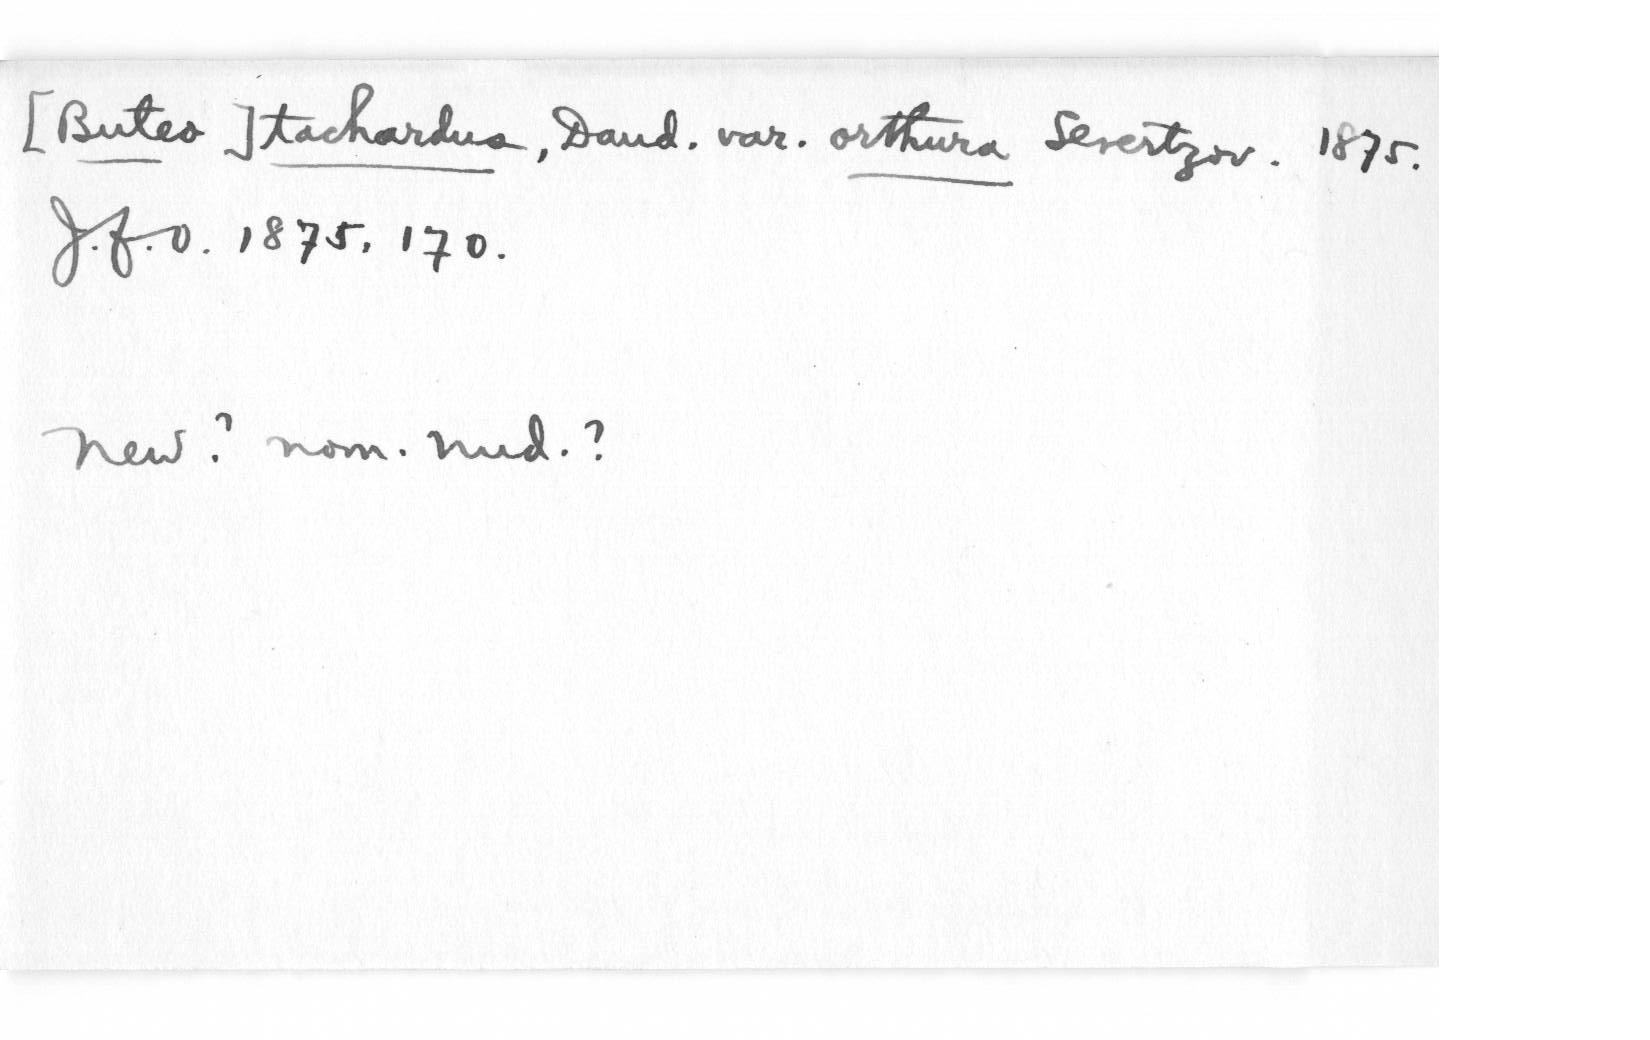 [Buteo] tachardus, Daud. var. orthura Severtzov. 1875.
J.f.O. 1875, 170.
New? nom. nud.?